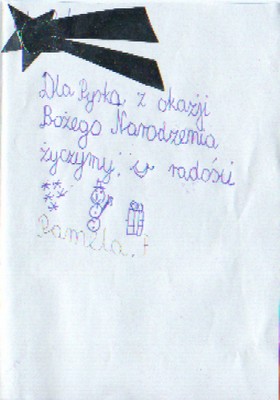 Dla Pypka z okazji
Bożego Narodzenia
życzymy radości
Pamela. F